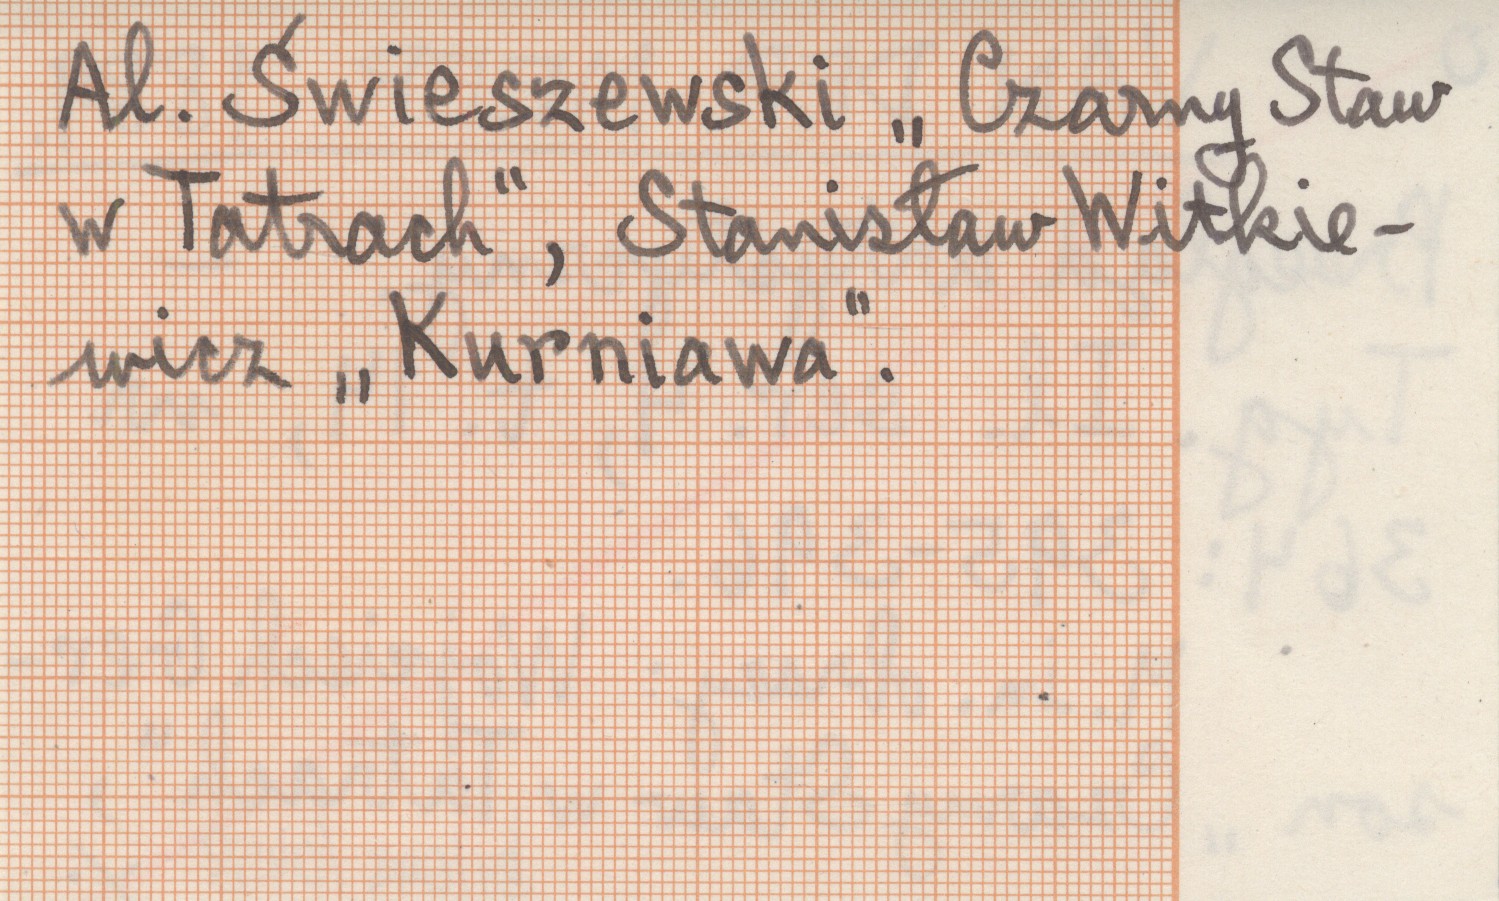 Al. Świeszewski „Czarny Staw
w Tatrach", Stanisław Witkie-
wicz „Kurniawa".